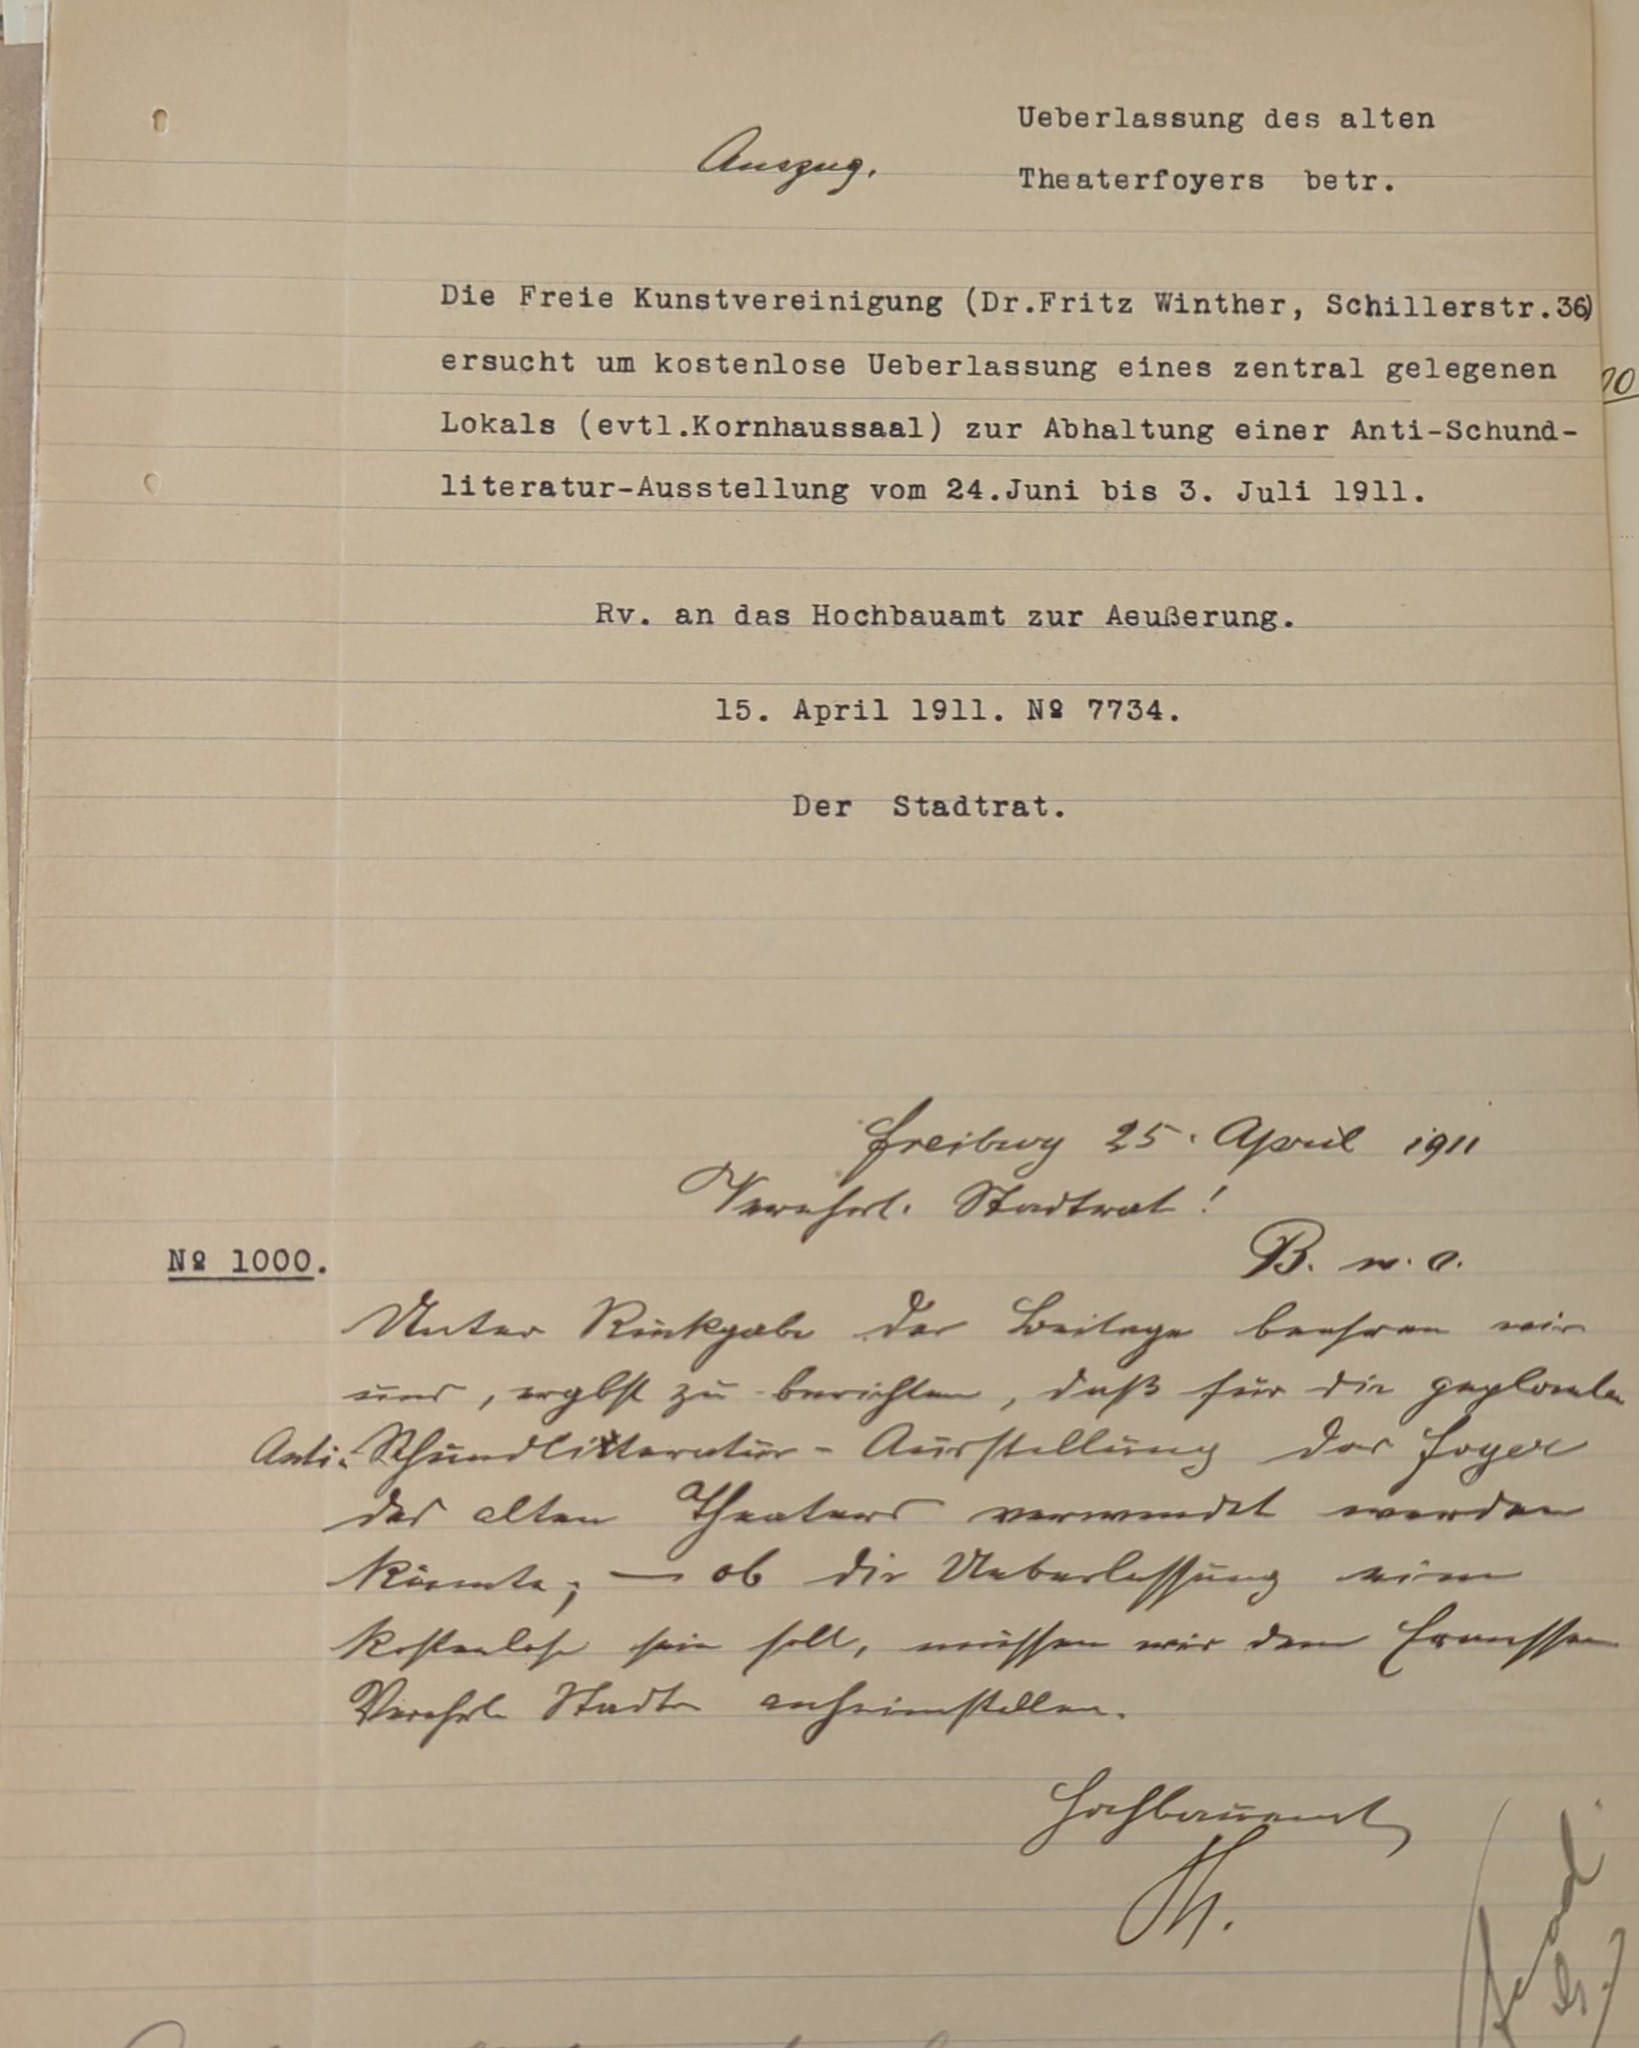 Ueberlassung des alten
Auszug.
Theaterfoyers betr.
Die Freie Kunstvereinigung (Dr.Fritz Winther, Schillerstr.36)
ersucht um kostenlose Ueberlassung eines zentral gelegenen
Lokals (evtl.Kornhaussaal) zur Abhaltung einer Anti-Schund-
literatur-Ausstellung vom 24.Juni bis 3. Juli 1911.
Rv. an das Hochbauamt zur Aeußerung.
15. April 1911. № 7734.
Der Stadtrat.
Freiburg 25. April 1911
Verehrl. Stadtrat!
№ 1000.
B. w. o.
Unter Rückgabe der Beilage beehren wir
uns, ergbst zu berichten, daß für die geplante
Anti-Schundlitteratur-Ausstellung das Foyer
des alten Theaters verwendet werden
könnte; — ob die Ueberlassung eine
kostenlose sein soll, müssen wir dem Ermessen
Verehrl. Stadtr. anheimstellen.
Hochbauamt
Th.